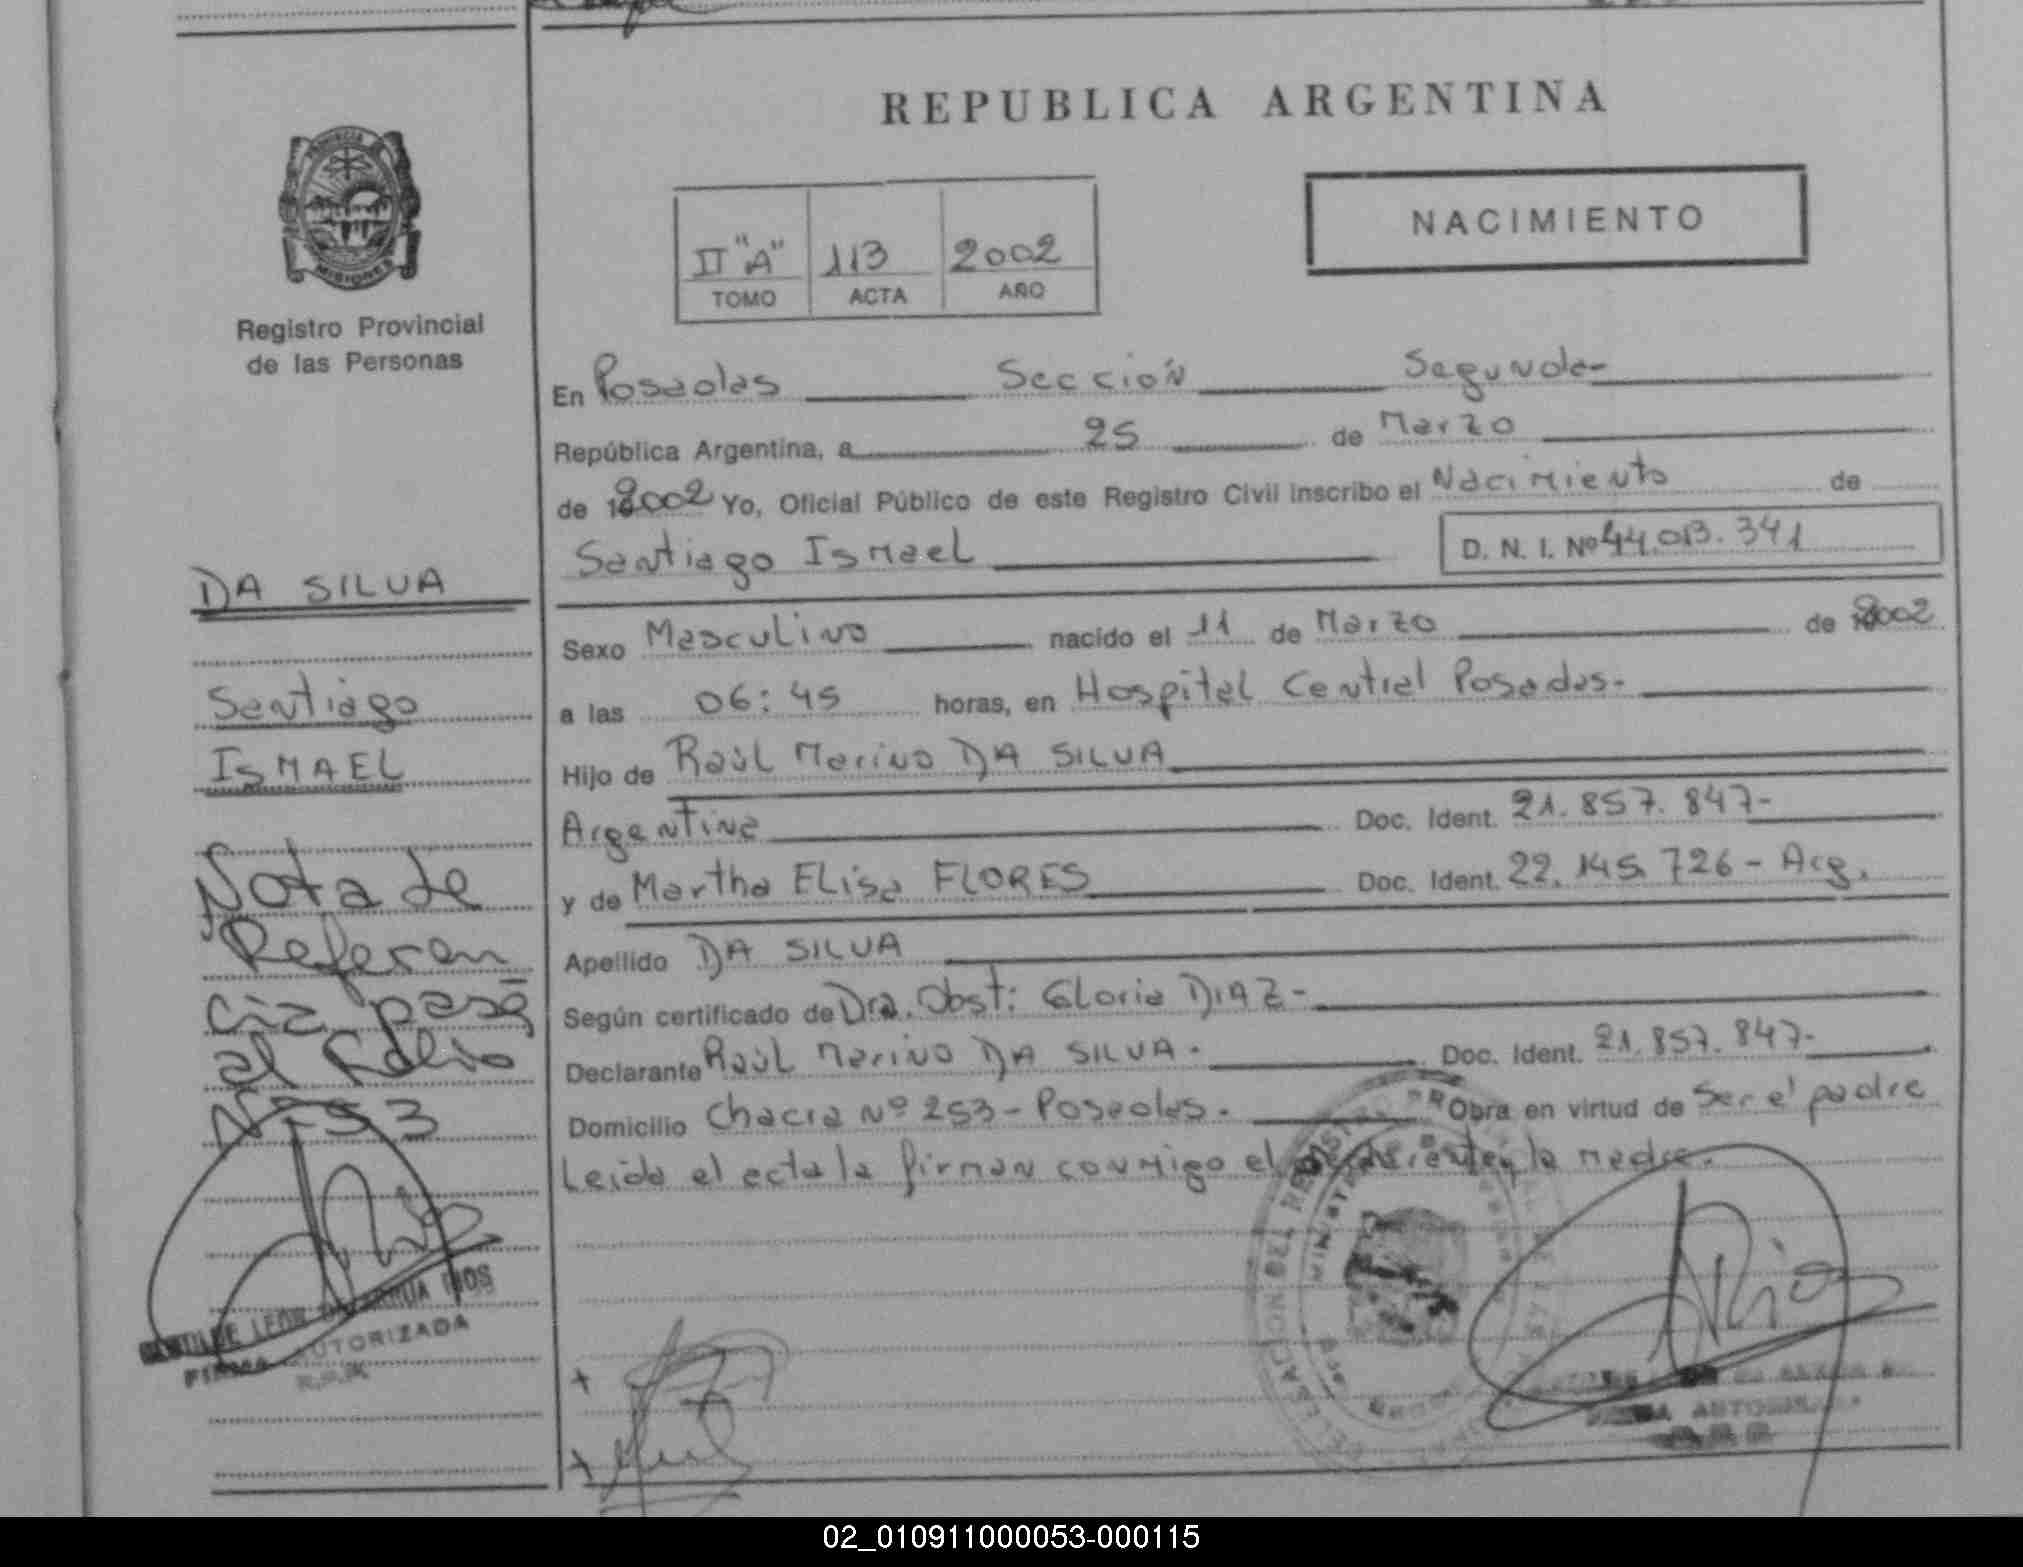 REPUBLICA ARGENTINA
NACIMIENTO
II "A" 113 2002
TOMO ACTA AÑO
MISIONES
Registro Provincial
de las Personas
En Posadas Sección Segunda-
República Argentina, a 25 de Marzo
de 2002 Yo, Oficial Público de este Registro Civil inscribo el Nacimiento de
Santiago Ismael D. N. I. Nº 44.013.341
DA SILVA
Santiago
ISMAEL
Nota de
Referen
cia pasa
al folio
Nº 53
FIRMA AUTORIZADA
R.P.P.
Sexo Masculino nacido el 11 de Marzo de 2002
a las 06:45 horas, en Hospital Central Posadas.
Hijo de Raúl Marino DA SILVA
Argentina Doc. Ident. 21.857.847-
y de Martha Elisa FLORES Doc. Ident. 22.145.726- Arg.
Apellido DA SILVA
Según certificado de Dra. Obst: Gloria DIAZ-
Declarante Raúl Marino DA SILVA. Doc. Ident. 21.857.847-
Domicilio Chacra Nº 253-Posadas. Obra en virtud de ser el padre
Leída el acta la firman conmigo el y la madre.
02_010911000053-000115